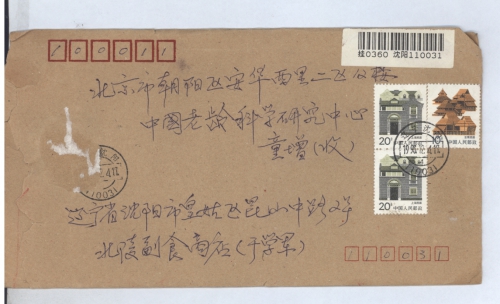 100011
挂0360 沈阳110031
北京市朝阳区安华西里二区
中国老龄科学研究中心
童增(收)
20分
中国人民邮政
20分
中国人民邮政
辽宁省沈阳市皇姑区昆山中路
北陵副食商店(于学军)
110031